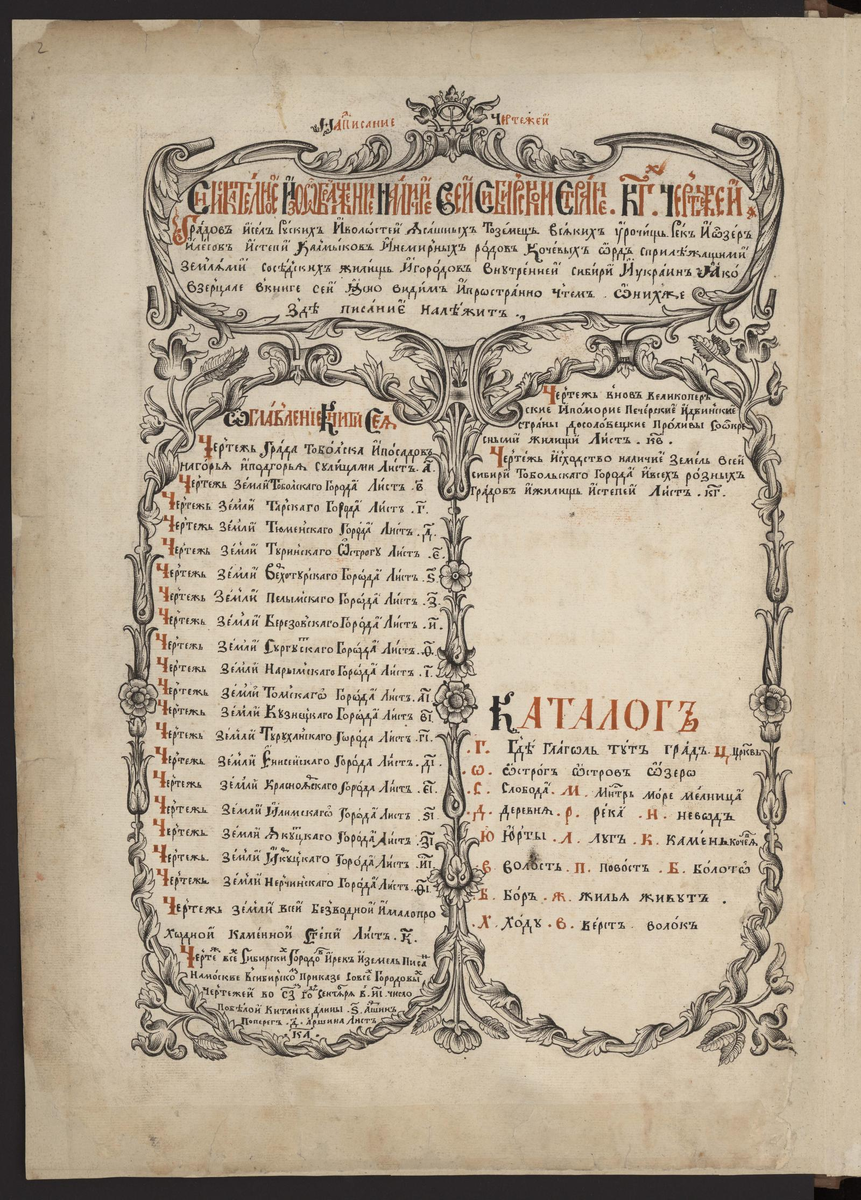 2
Написание Чертежей
всей Сибирскои Стране . КГ . Чертежей
Градовъ иселъ Рускихъ Иволостей Ясашныхъ Тоземецъ . всякихъ урочищь . Рекъ Иѡзеръ
Илесовъ Истепи Калмыковъ Инемирныхъ родовъ Кочевыхъ ѡрдъ сприлежащими
землями соседскихъ жилищь Игородовъ внутренней сибири Иукраинъ Яко
взерцале вкниге сей Ясно видимъ Ипространно чтемъ . ѡнихже
Здѣ писание належитъ .
Ѡглавление Книги Сея
Чертежь Града Тоболска Ипосадовъ
нагорья иподгорья сулицами Листъ . а҃ .
Чертежь Земли Тоболскаго Города Листъ . в҃
Чертежь Земли Тарскаго Города Листъ . г҃ .
Чертежь Земли Тюменскаго Города Листъ . д҃ .
Чертежь Земли Туринскаго Ѡстрогу Листъ . е҃ .
Чертежь Земли Верхотурскаго Города Листъ . ѕ҃
Чертежь Земли Пелымскаго Города Листъ . з҃
Чертежь Земли Березовскаго Города Листъ . и҃ .
Чертежь Земли Сургутскаго Города Листъ . ѳ҃ .
Чертежь Земли Нарымскаго Города Листъ . і҃ .
Чертежь Земли Томскагѡ Города Листъ . аі҃
Чертежь Земли Кузнецкаго Города Листъ ві҃
Чертежь Земли Туруханскаго Города Листъ . гі҃ .
Чертежь Земли Енисейскаго Города Листъ . ді҃
Чертежь Земли Красноярскаго Города Листъ . еі҃
Чертежь Земли Илимскагѡ Города Листъ . ѕі҃
Чертежь Земли Якуцкаго Города Листъ . зі҃
Чертежь Земли Иркуцкаго Города Листъ . иі҃
Чертежь Земли Нерчинскаго Города Листъ . ѳі҃
Чертежь земли всей Безводной Ималопро
ходной Каменной Степи Листъ . к҃ .
Чертежъ все Сибирскихъ Городовъ Ирекъ Иземель Писанъ
Намоскве Всибирскомъ Приказе Совсехъ Городовыхъ
Чертежей во сентября в . иі҃ . число
Побѣлой Китайке длины . ѕ҃ . Аршинъ
Поперегъ . д҃ . Аршина Листъ
. КА .
Чертежь вновь великопер
ские Ипоморие Печерские Идвинские
страны досоловецкие Проливы Сѡкре
сными жилищи Листъ . кв҃ .
Чертежь Исходство наличие Земель всей
сибири Тобольскаго Города Ивсехъ розныхъ
Градовъ Ижилищь Истепей Листъ . кг҃ .
КАТАЛОГЪ
. Г . Гдѣ глаголь тутъ градъ . Ц . церковь
. Ѡ . ѡстрогъ ѡстровъ ѡзеро
. С . Слобода . М . Монастырь море мелница
. Д . деревня . Р . река . Н . неводъ
. Ю . Юрты . Л . Лугъ . К . камень кочевья
. В . волость . П . повостъ . Б . болотѡ
. Б . боръ . Ж . жилья живутъ .
. Х . Ходу . В . верстъ . волокъ